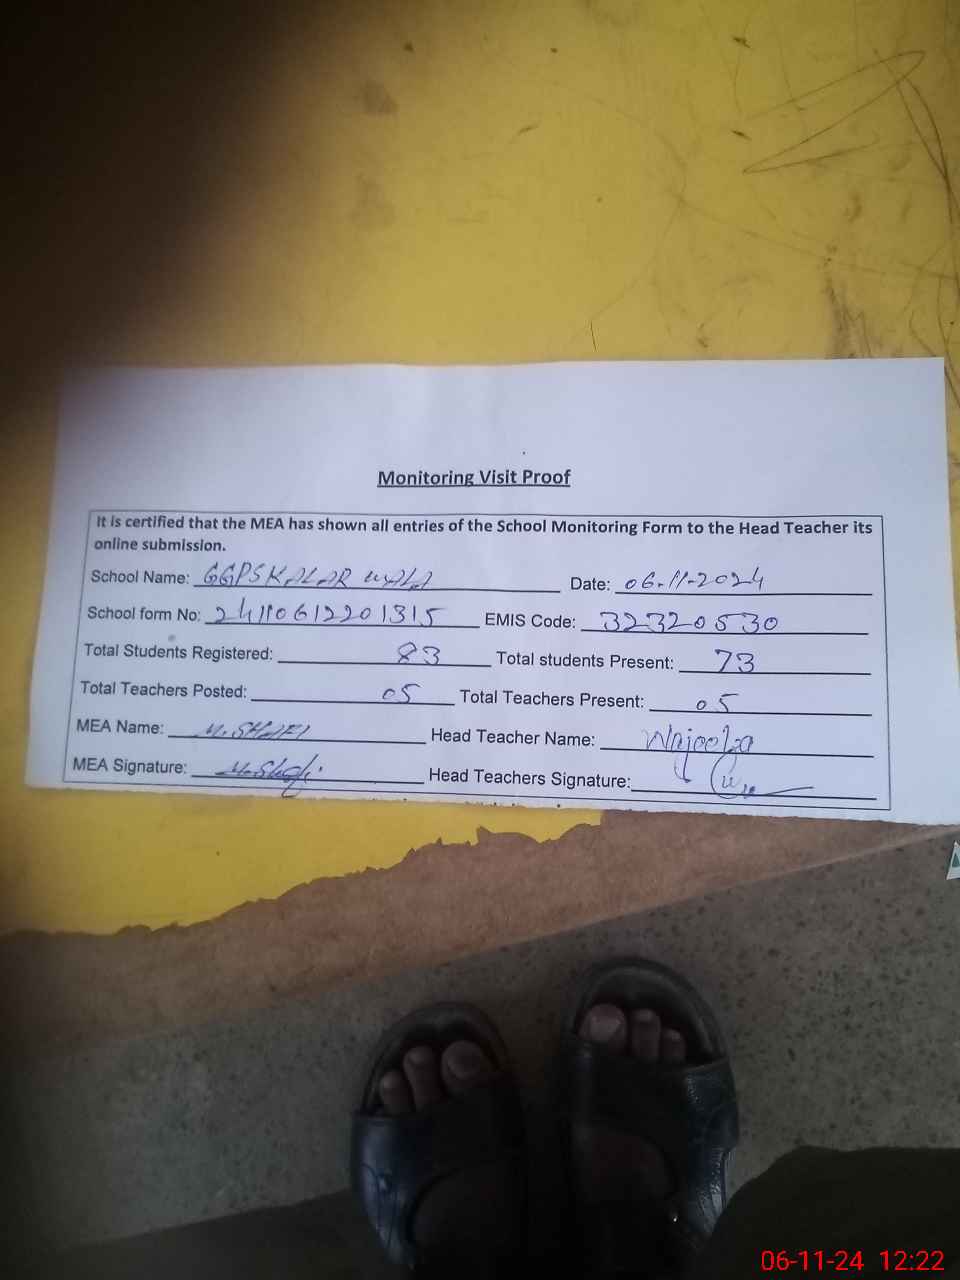 Monitoring Visit Proof
It is certified that the MEA has shown all entries of the School Monitoring Form to the Head Teacher its
online submission.
School Name: GGPS KALAR WALA Date: 06-11-2024
School form No: 24110612201315 EMIS Code: 32320530
Total Students Registered: 83 Total students Present: 73
Total Teachers Posted: 05 Total Teachers Present: 05
MEA Name: M. SHAFI Head Teacher Name:
MEA Signature: M. Shafi Head Teachers Signature:
06-11-24 12:22